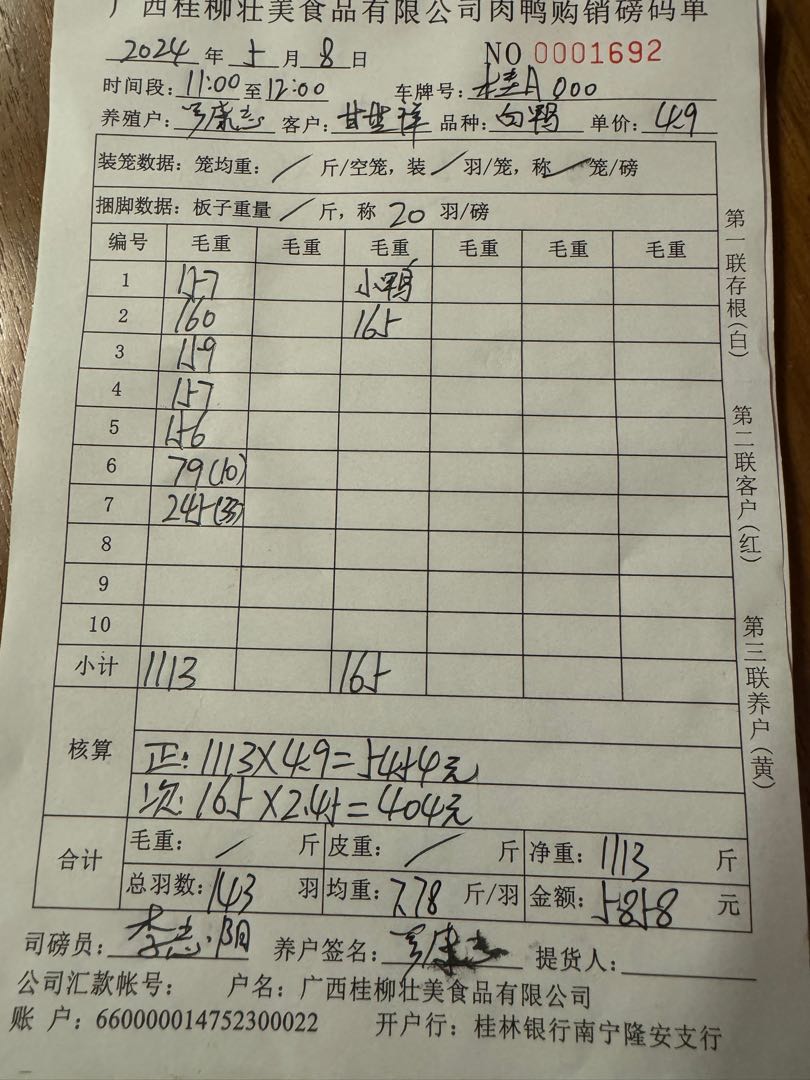 广西桂柳壮美食品有限公司肉鸭购销磅码单
2024 年 5 月 8 日 NO 0001692
时间段: 11:00 至 12:00 车牌号: 桂A 000
养殖户: 康志 客户: 甘 祥 品种: 白鸭 单价: 4.9
装笼数据: 笼均重: / 斤/空笼, 装 / 羽/笼, 称 / 笼/磅
捆脚数据: 板子重量 / 斤, 称 20 羽/磅
编号 毛重 毛重 毛重 毛重 毛重 毛重
1 157 小鸭
2 160 165
3 159
4 157
5 156
6 79(10)
7 245(33)
8
9
10
小计 1113 165
核算
正: 1113X4.9=5454元
次: 165X2.45=404元
合计 毛重: / 斤 皮重: / 斤 净重: 1113 斤
总羽数: 143 羽 均重: 7.78 斤/羽 金额: 5858 元
司磅员: 李志阳 养户签名: 康志 提货人:
公司汇款帐号: 户名: 广西桂柳壮美食品有限公司
账 户: 660000014752300022 开户行: 桂林银行南宁隆安支行
第一联存根(白)
第二联客户(红)
第三联养户(黄)